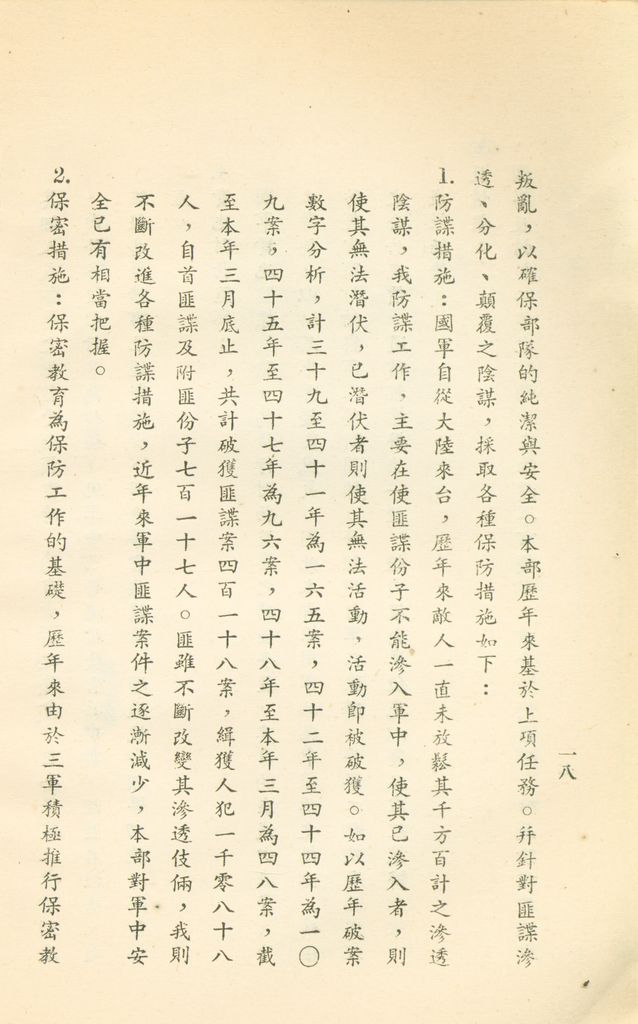 叛亂，以確保部隊的純潔與安全。本部歷年來基於上項任務。幷針對匪諜滲
透、分化、顛覆之陰謀，採取各種保防措施如下：
1.防諜措施：國軍自從大陸來台，歷年來敵人一直未放鬆其千方百計之滲透
陰謀，我防諜工作，主要在使匪諜份子不能滲入軍中，使其已滲入者，則
使其無法潛伏，已潛伏者則使其無法活動，活動即被破獲。如以歷年破案
數字分析，計三十九至四十一年為一六五案，四十二年至四十四年為一〇
九案，四十五年至四十七年為九六案，四十八年至本年三月為四八案，截
至本年三月底止，共計破獲匪諜案四百一十八案，緝獲人犯一千零八十八
人，自首匪諜及附匪份子七百一十七人。匪雖不斷改變其滲透伎倆，我則
不斷改進各種防諜措施，近年來軍中匪諜案件之逐漸減少，本部對軍中安
全已有相當把握。
2.保密措施：保密教育為保防工作的基礎，歷年來由於三軍積極推行保密教
一八